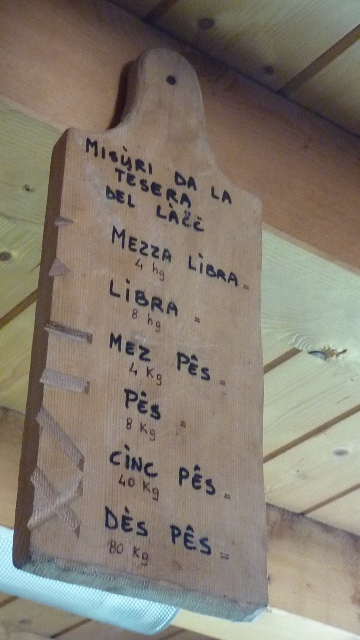 MISÙRI DA LA
TÈSERA
DEL LÀČČ
MEZZA LÌBRA =
4 hg
LÌBRA =
8 hg
MEZ PÊS =
4 Kg
PÊS =
8 Kg
CÌNC PÊS =
40 Kg
DÈS PÊS =
80 Kg